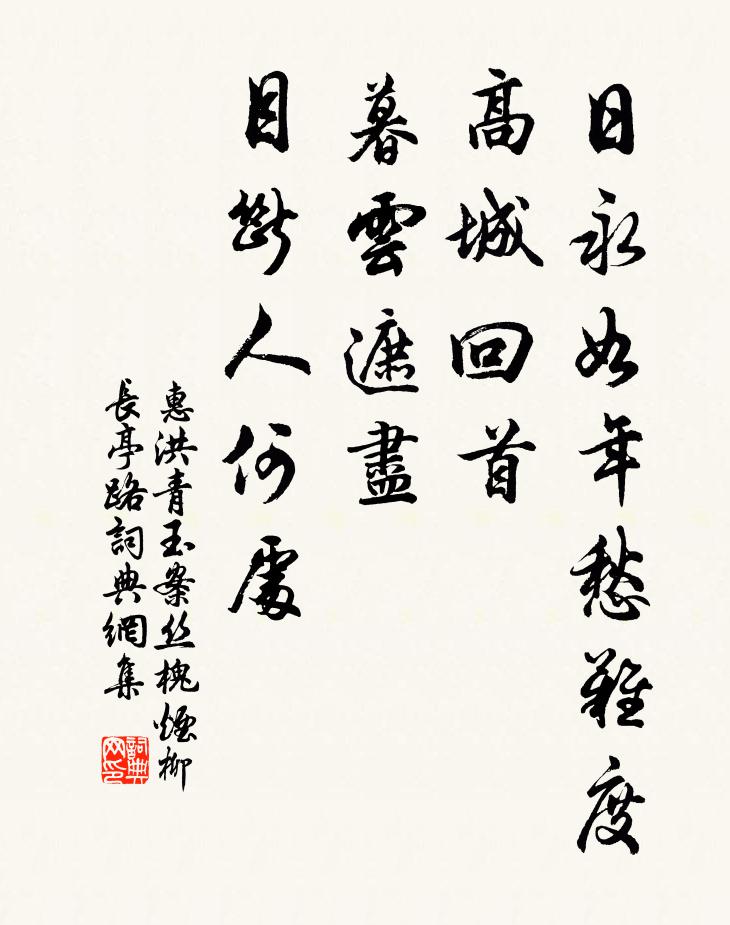 日永如年愁難度
高城回首
暮雲遮盡
目斷人何處
惠洪青玉案丝槐煙柳
長亭路詞典網集
詞典网印